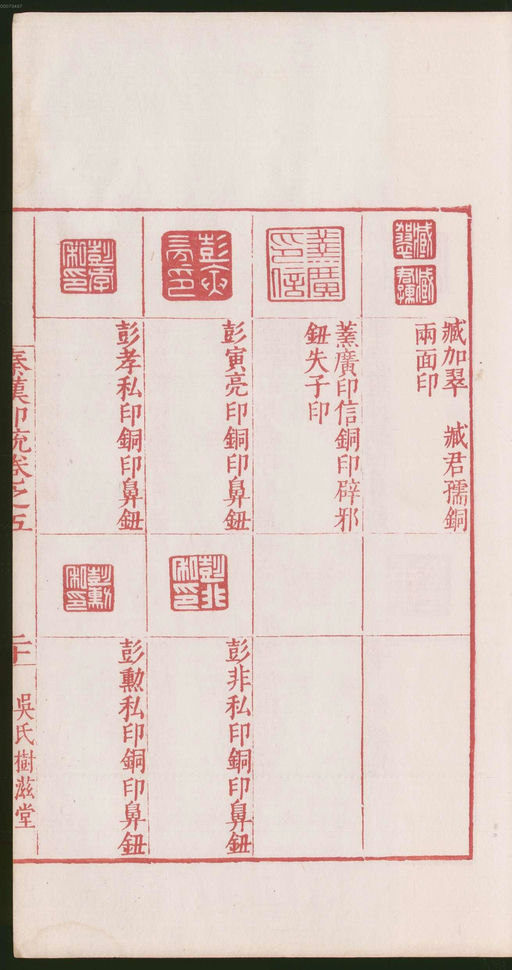 臧加翠　臧君孺銅
兩面印
藁廣印信銅印辟邪
鈕失子印
彭寅亮印銅印鼻鈕
彭非私印銅印鼻鈕
彭孝私印銅印鼻鈕
彭勲私印銅印鼻鈕
秦漢印統卷之五
二十一
吳氏樹滋堂
00079487